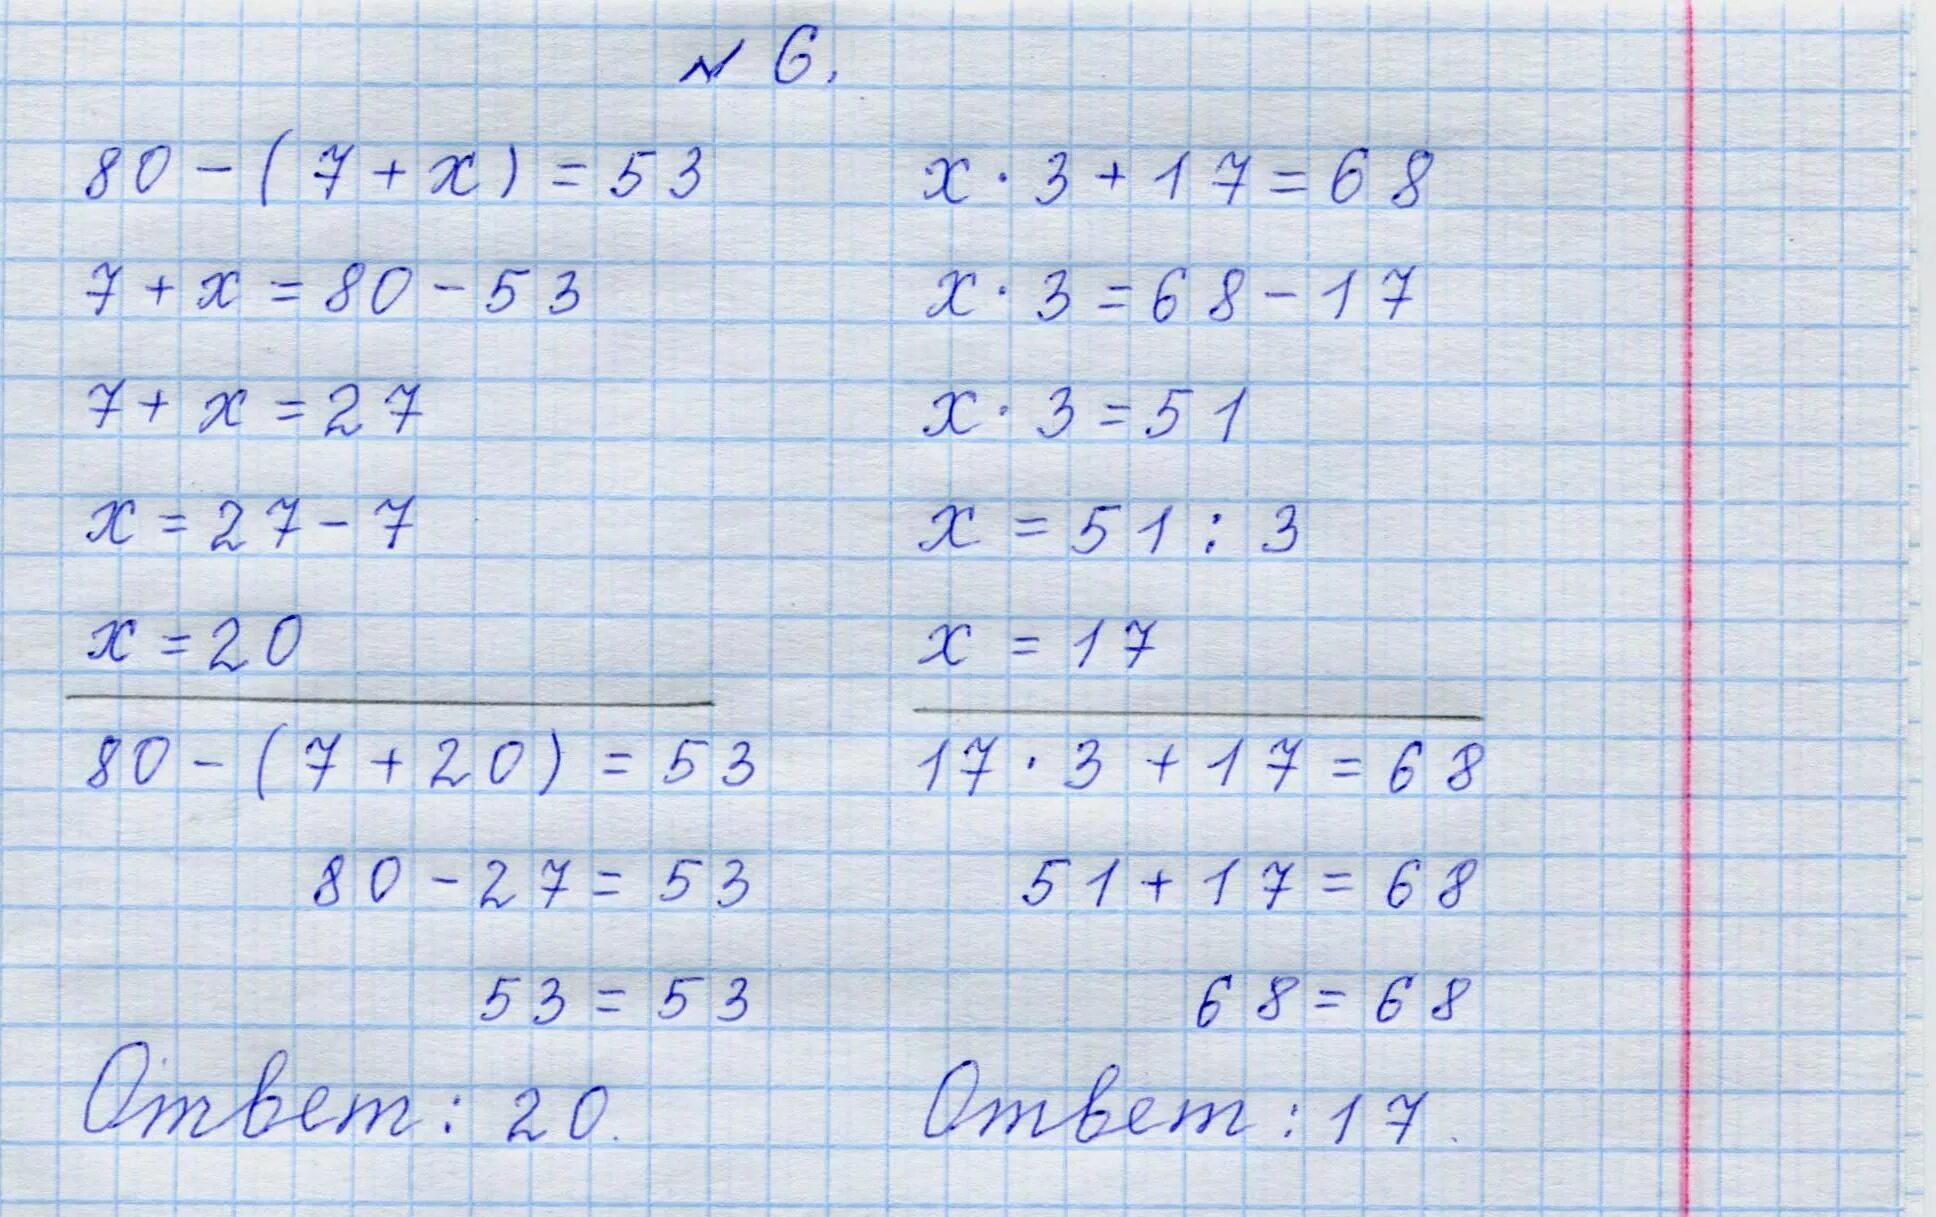 № 6.
80 - (7 + x) = 53
7 + x = 80 - 53
7 + x = 27
x = 27 - 7
x = 20
80 - (7 + 20) = 53
80 - 27 = 53
53 = 53
Ответ: 20.
x · 3 + 17 = 68
x · 3 = 68 - 17
x · 3 = 51
x = 51 : 3
x = 17
17 · 3 + 17 = 68
51 + 17 = 68
68 = 68
Ответ: 17.